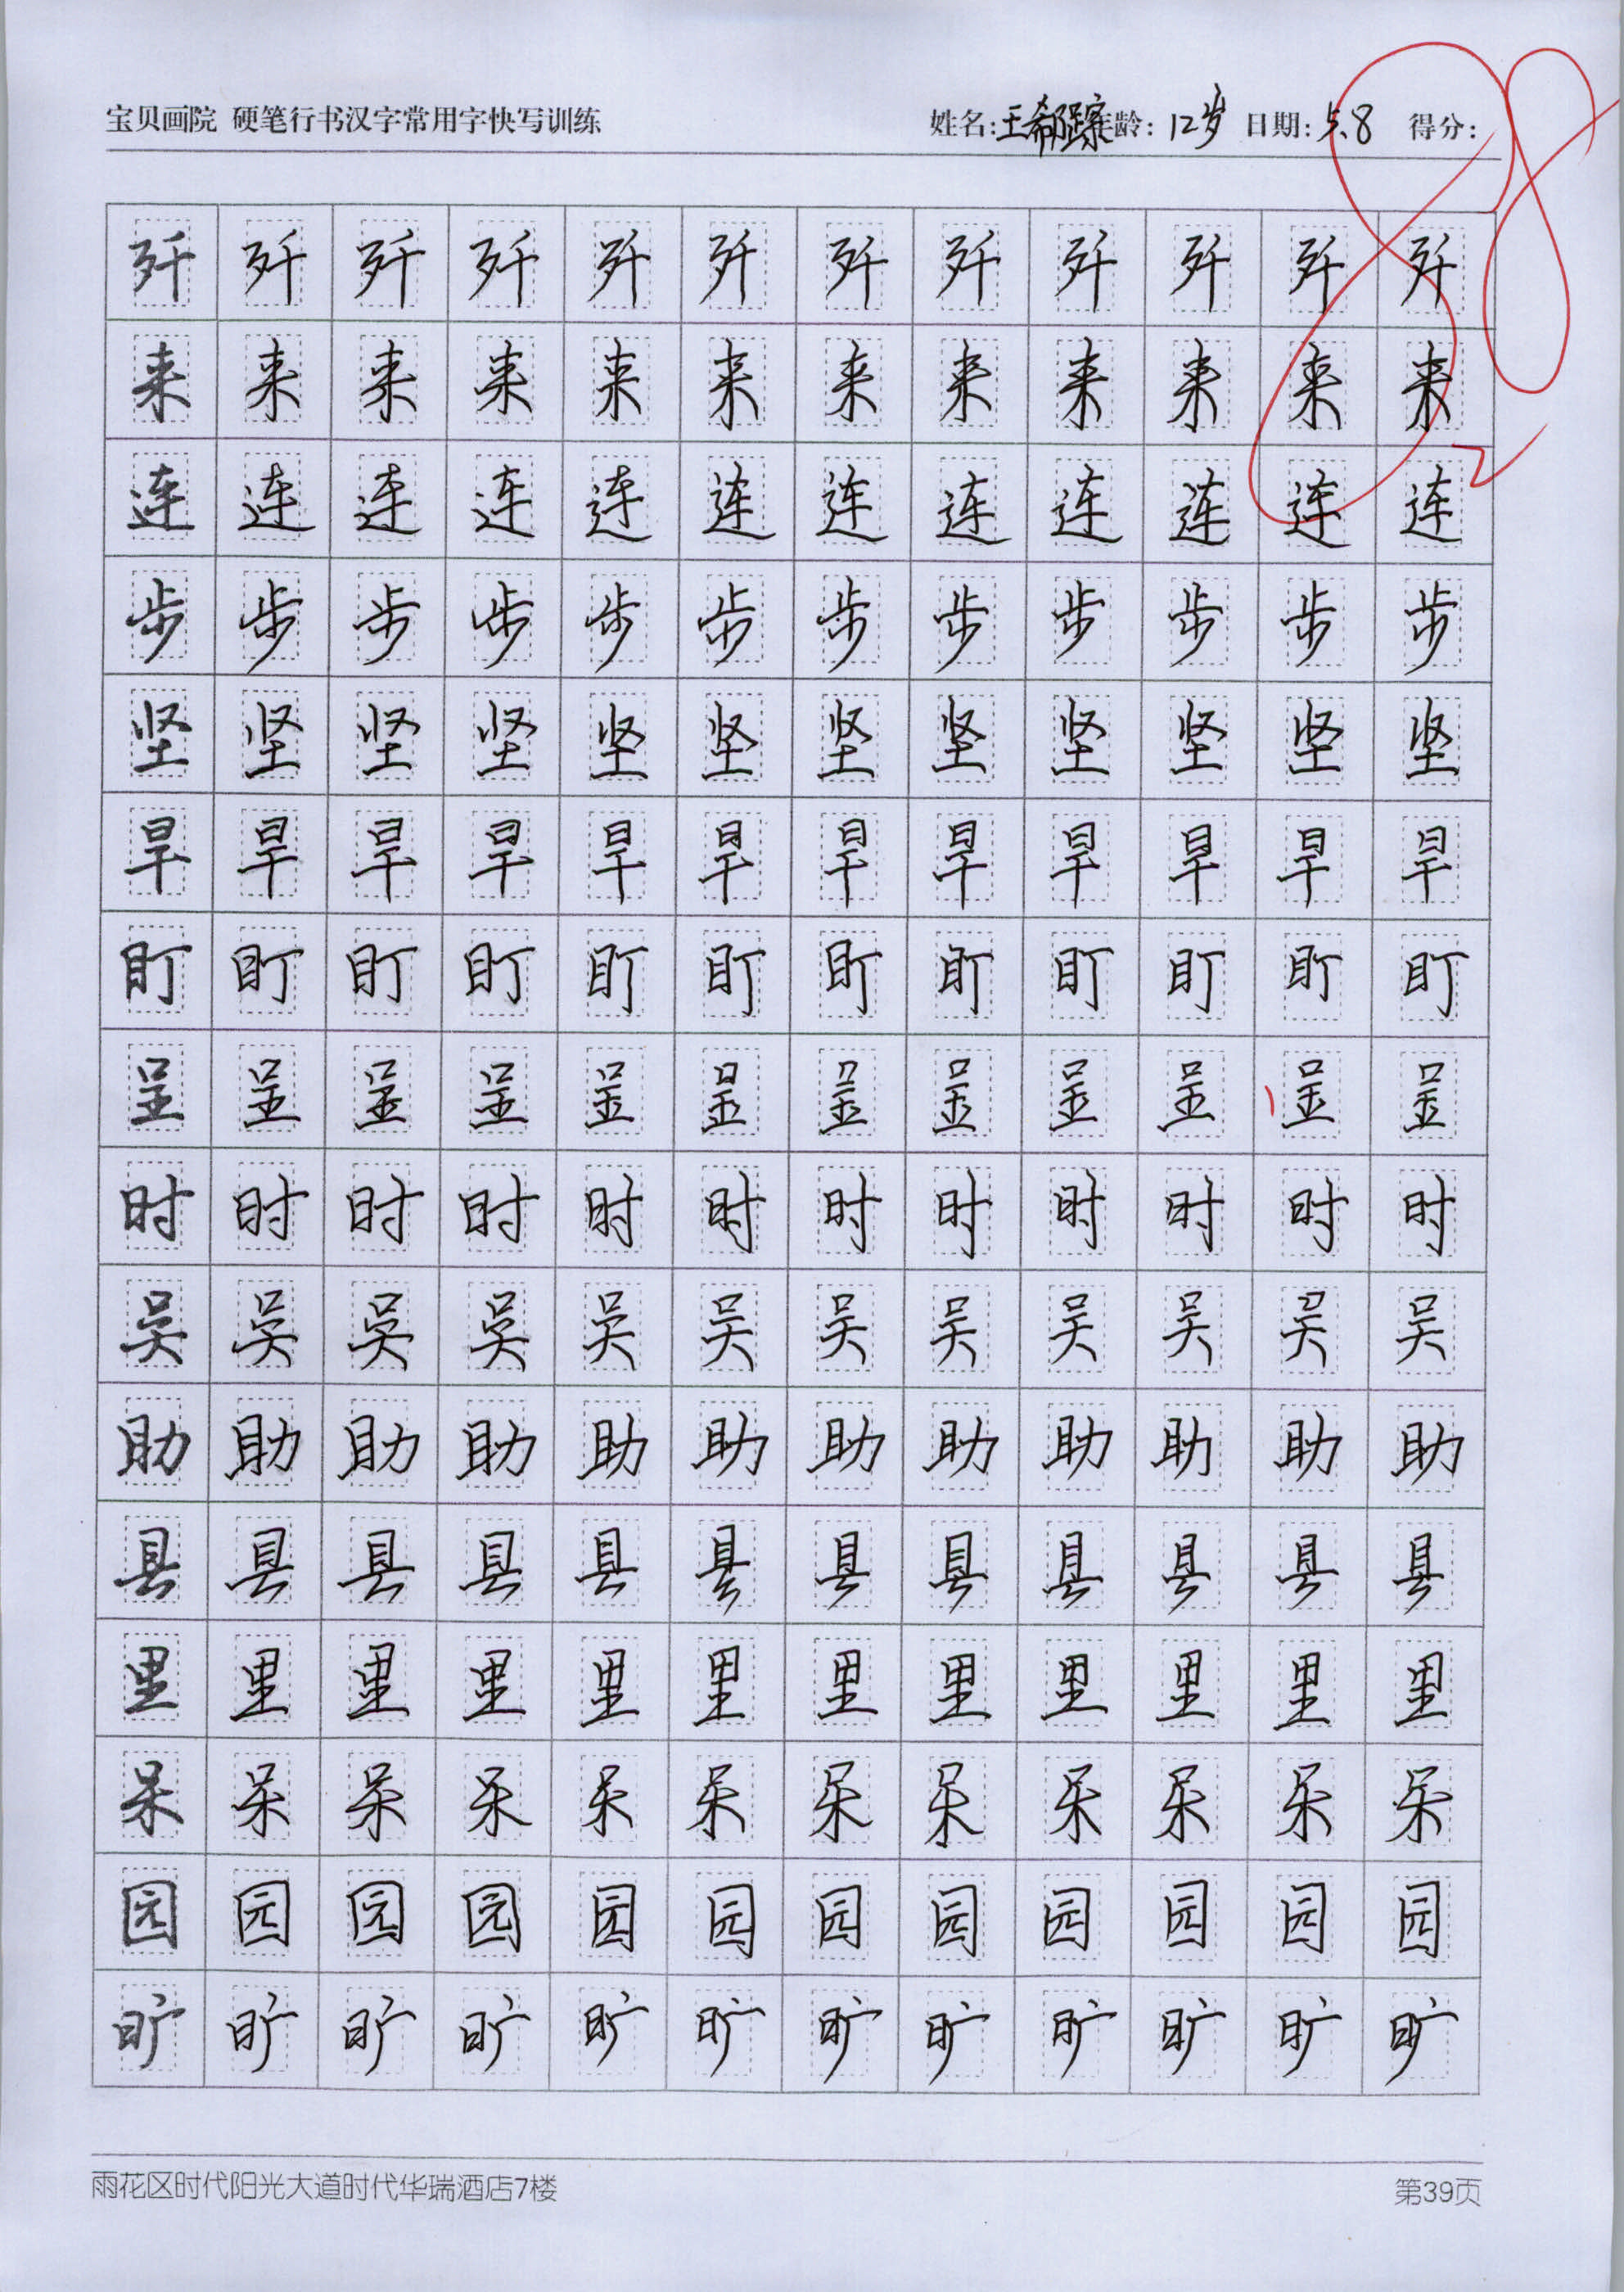 宝贝画院 硬笔行书汉字常用字快写训练 姓名: 王 年龄: 12岁 日期: 5.8 得分: 98
歼 歼 歼 歼 歼 歼 歼 歼 歼 歼 歼 歼
来 来 来 来 来 来 来 来 来 来 来 来
连 连 连 连 连 连 连 连 连 连 连 连
步 步 步 步 步 步 步 步 步 步 步 步
坚 坚 坚 坚 坚 坚 坚 坚 坚 坚 坚 坚
旱 旱 旱 旱 旱 旱 旱 旱 旱 旱 旱 旱
盯 盯 盯 盯 盯 盯 盯 盯 盯 盯 盯 盯
呈 呈 呈 呈 呈 呈 呈 呈 呈 呈 呈 呈
时 时 时 时 时 时 时 时 时 时 时 时
吴 吴 吴 吴 吴 吴 吴 吴 吴 吴 吴 吴
助 助 助 助 助 助 助 助 助 助 助 助
县 县 县 县 县 县 县 县 县 县 县 县
里 里 里 里 里 里 里 里 里 里 里 里
呆 呆 呆 呆 呆 呆 呆 呆 呆 呆 呆 呆
园 园 园 园 园 园 园 园 园 园 园 园
旷 旷 旷 旷 旷 旷 旷 旷 旷 旷 旷 旷
雨花区时代阳光大道时代华瑞酒店7楼 第39页